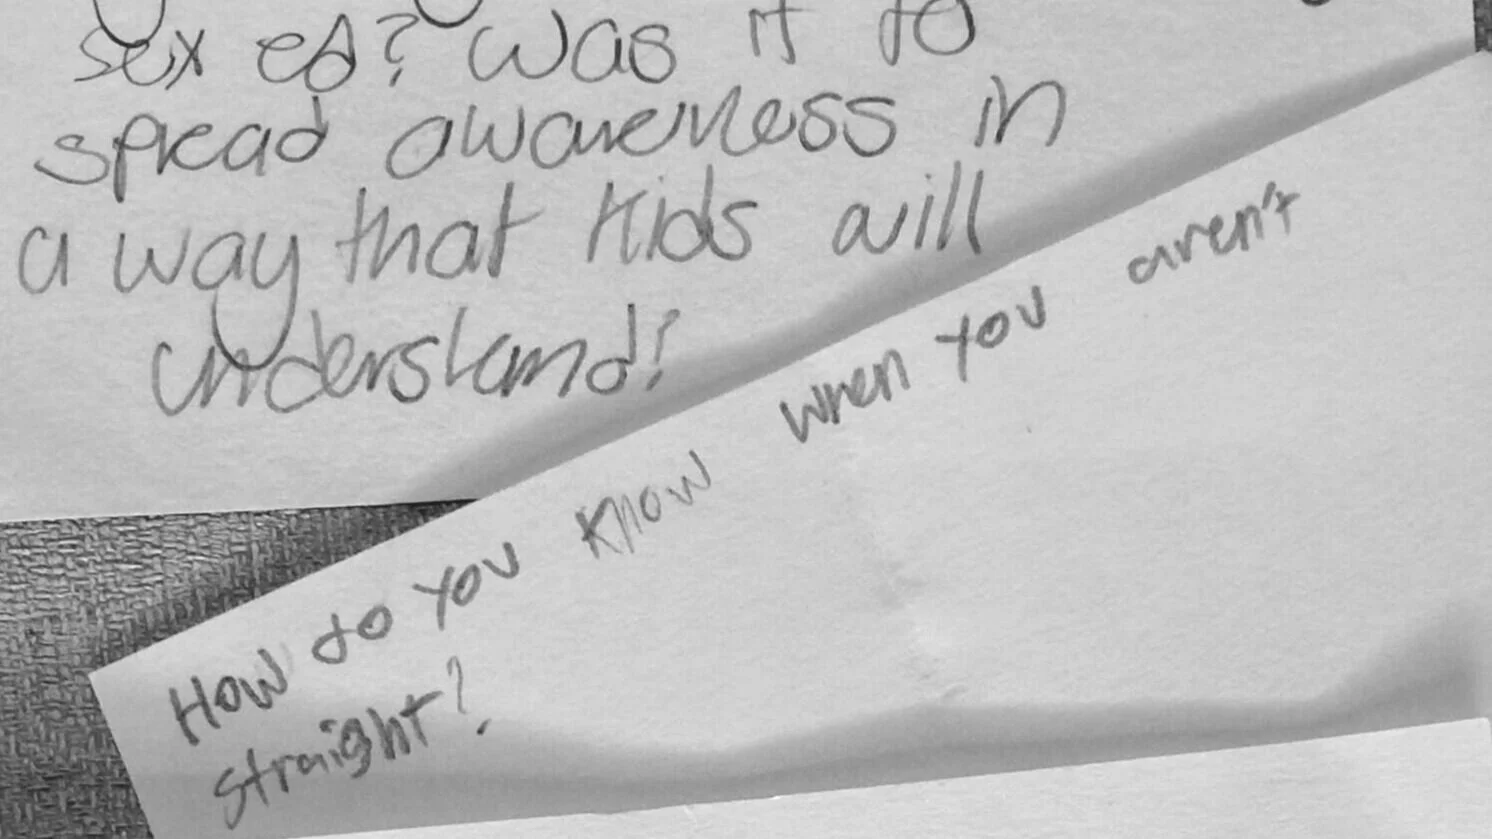 sex ed? Was it to
spread awareness in
a way that kids will
understand?
How do you know when you aren't
straight?